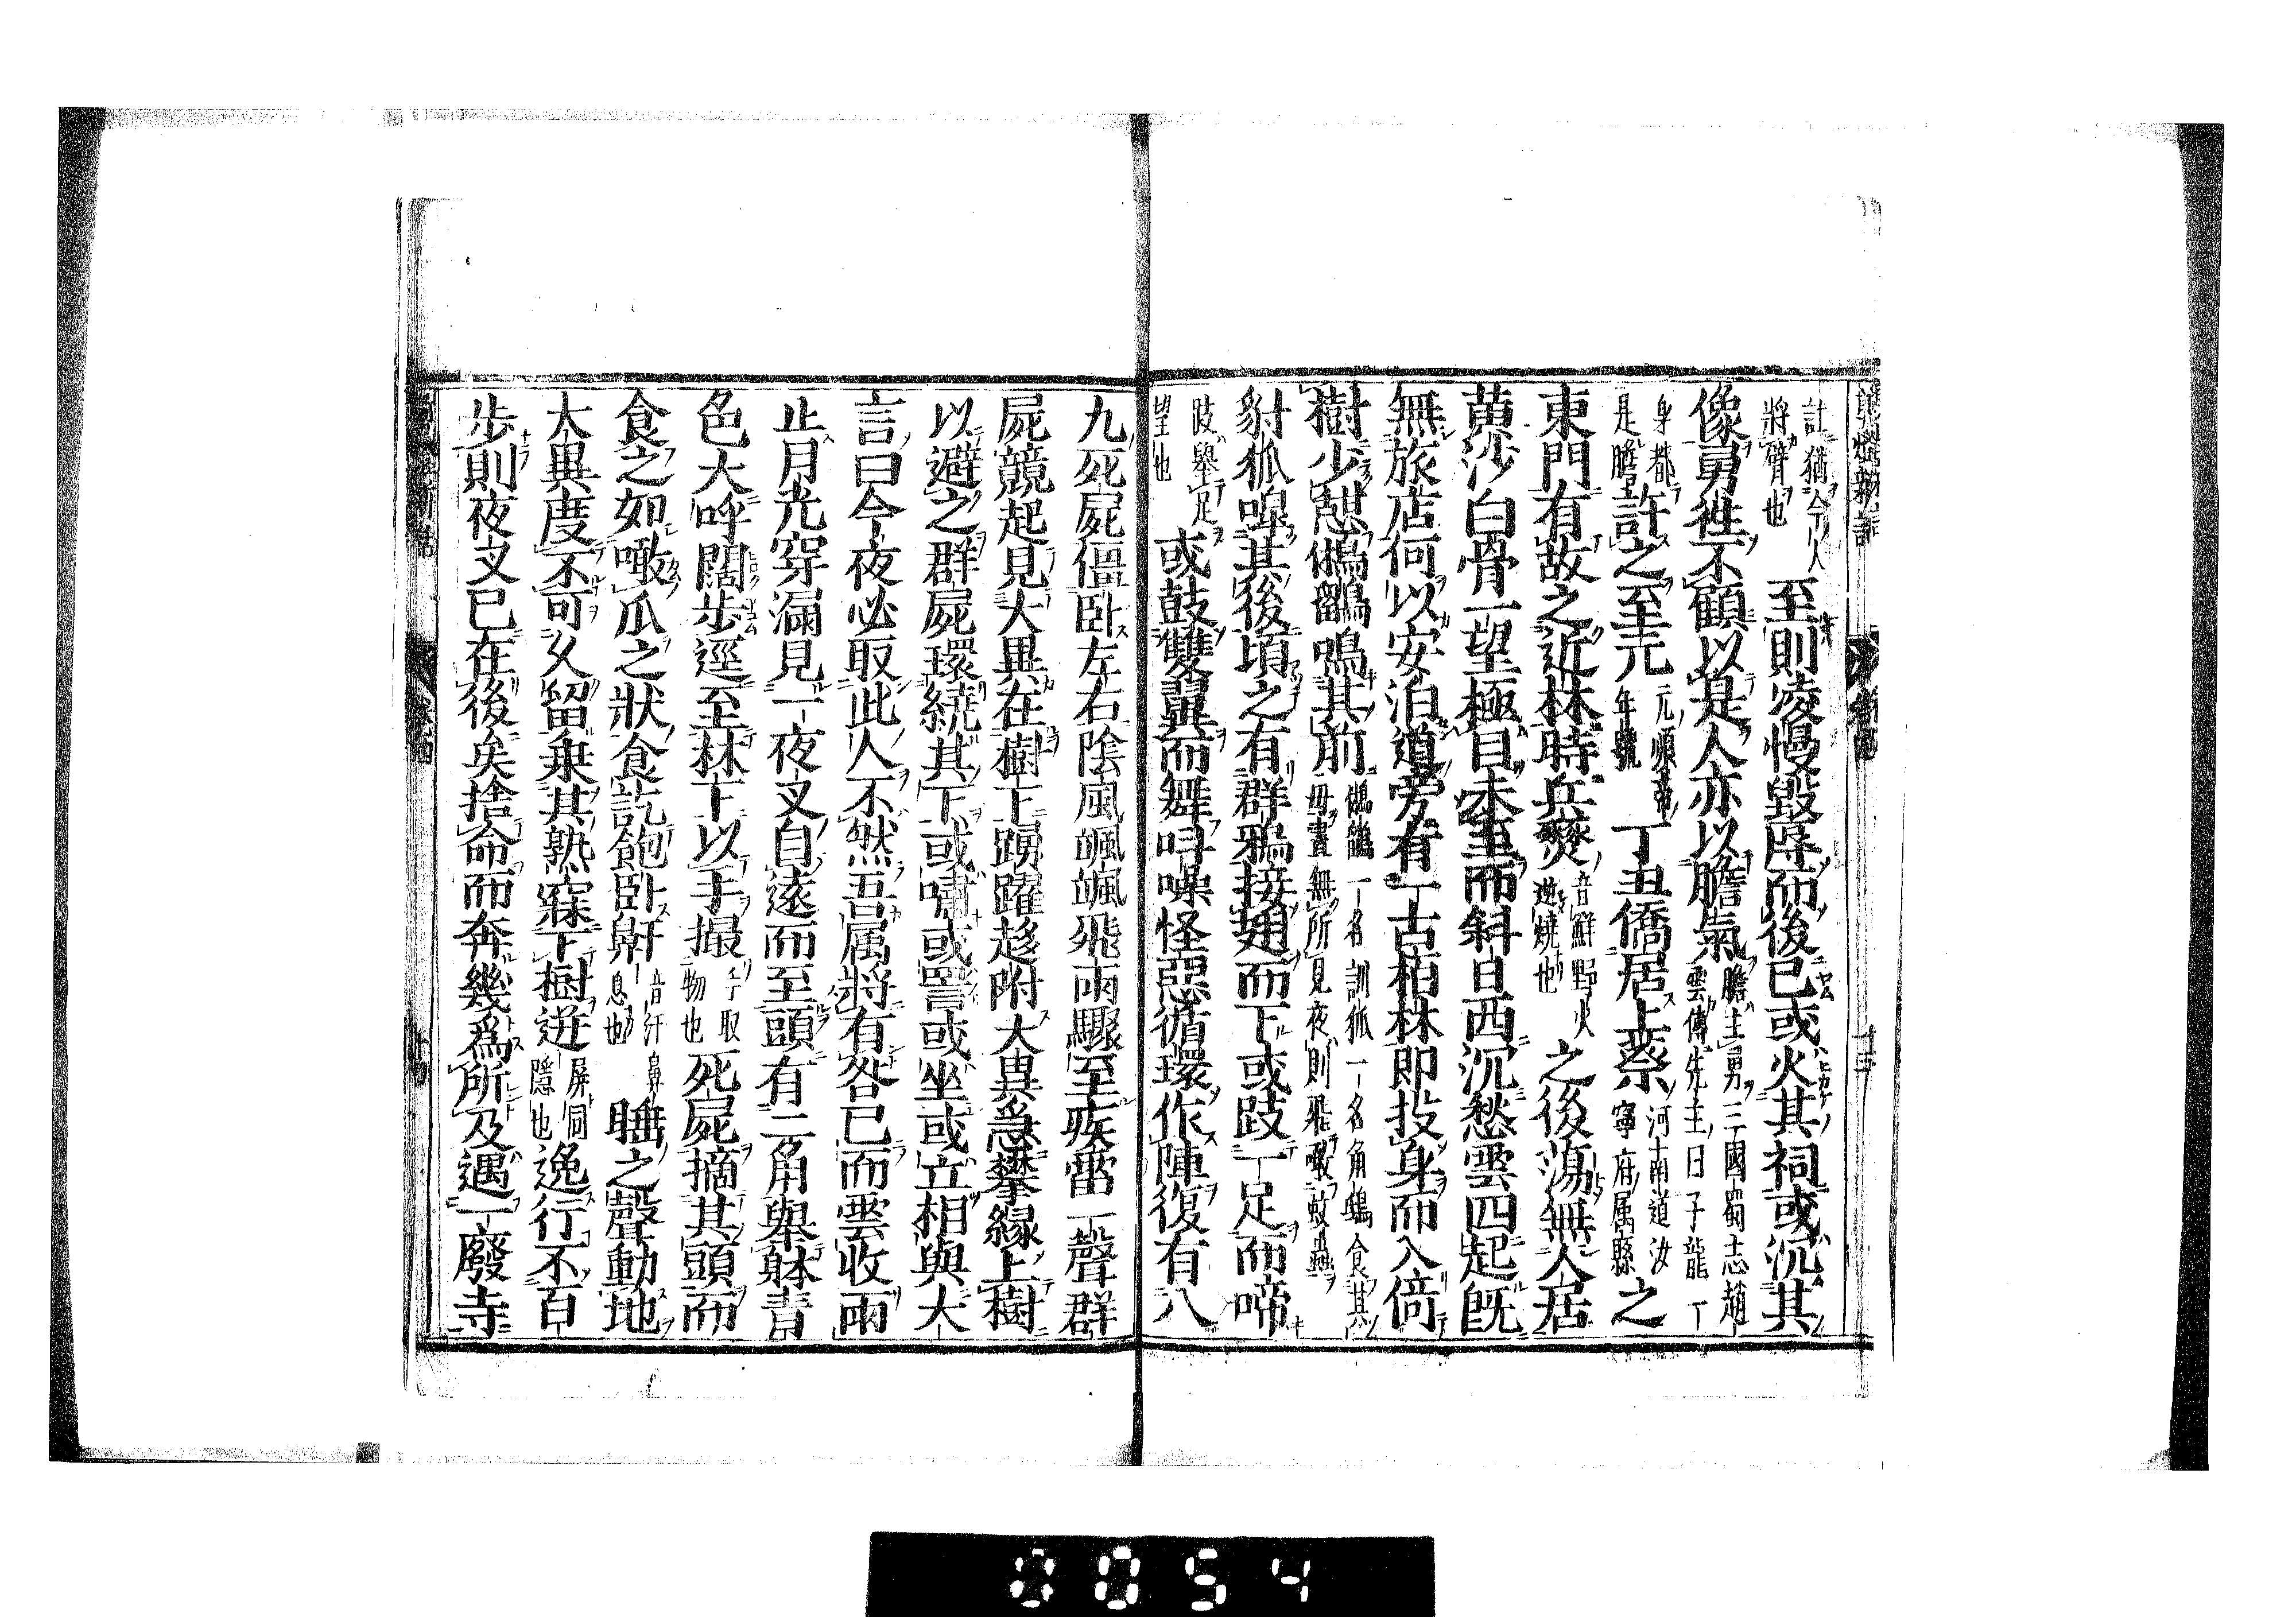 計猶今人
將臂也
至則凌慢毀辱而後已或火其祠或沉其
像勇徃不顧以是人亦以膽氣
膽主勇三國蜀志趙
雲傳先主曰子龍丁
身都
是膽
許之至元
元順帝
年號
丁丑僑居上蔡
河南道汝
寧府属縣
之
東門有故之近林時兵燹
音鮮野火
迸燒也
之後蕩無人居
黄沙白骨一望極目未至而斜日西沉愁雲四起既
無旅店何以安泊道旁有一古栢林即投身而入倚
樹少憇鵂鶹鳴其前
鵂鶹一名訓狐一名角鴟食其
母晝無所見夜則飛噉蚊䖟
豺狐嘷其後頃之有群鴉接翅而下或跂一足而啼
跂舉足
望也
或鼓雙翼而舞呌噪怪惡循環作陣復有八
九死屍僵卧左右陰風颯颯飛雨驟至疾雷一聲群
屍競起見大異在樹下踴躍趍附大異急攀緣上樹
以避之群屍環繞其下或嘯或詈或坐或立相與大
言曰今夜必取此人不然吾属將有咎已而雲收雨
止月光穿漏見一夜叉自遠而至頭有二角舉躰青
色大呼闊歩逕至林下以手撮
手取
物也
死屍摘其頭而
食之如噉瓜之狀食訖飽卧鼾
音汗鼻
息也
睡之聲動地
大異度不可久留乗其熟寐下樹迸
屏同
隱也
逸行不百
歩則夜叉已在後矣捨命而奔幾爲所及遇一廢寺
0054